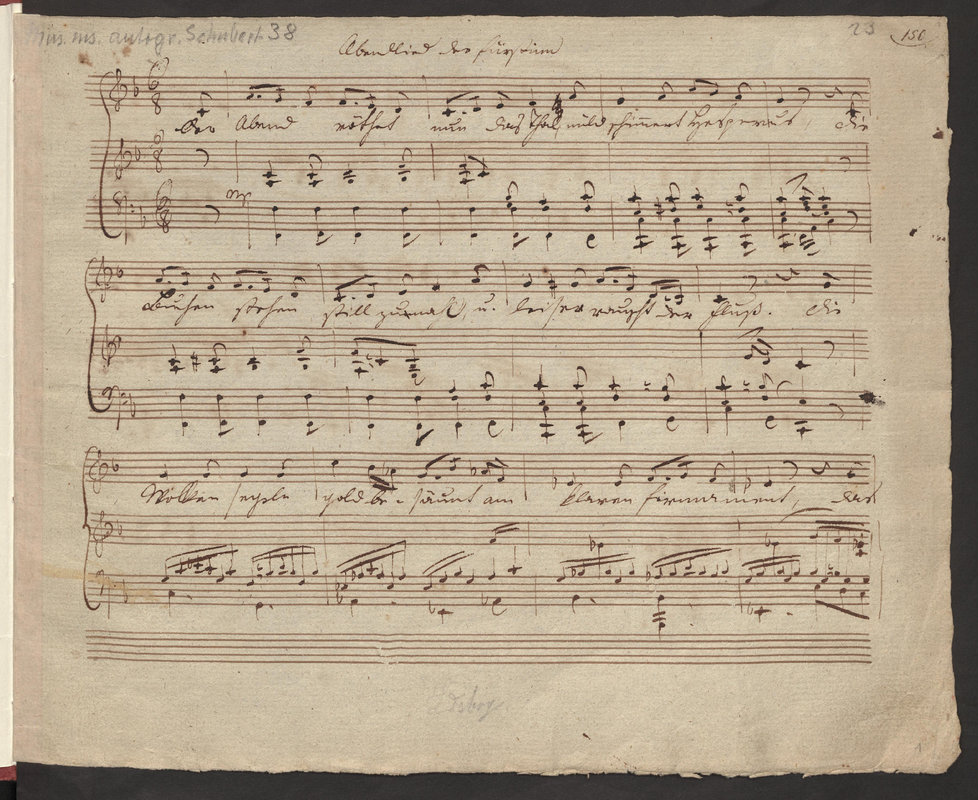 mus. ms. autogr. Schubert 38
23
150
Abendlied der Fürstinn
Der Abend röthet nun das Thal, mild schim̅ert Hesperus, die
Buchen stehen still zumahl, u. leiser rauscht der Fluß. Die
Wolken segeln goldbesäumt am klaren Firmament, das